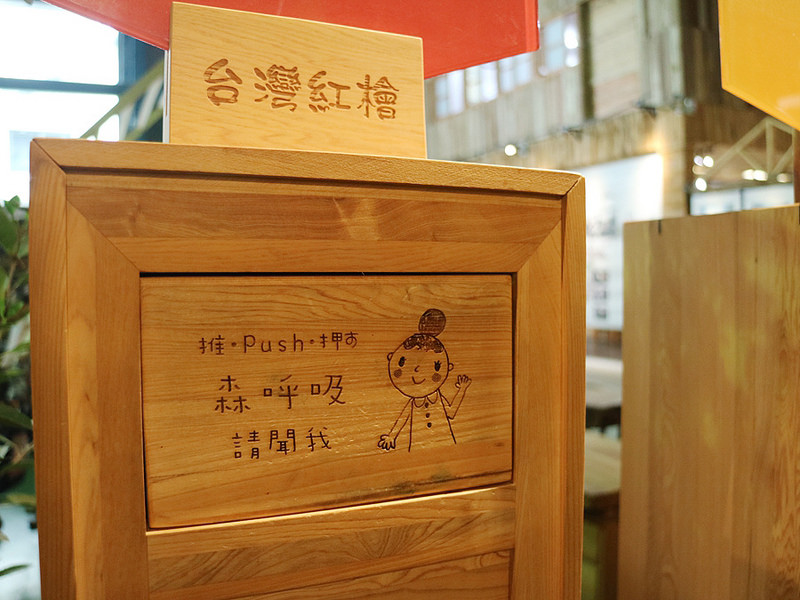 台灣紅檜
推・Push・押す
森呼吸
請聞我